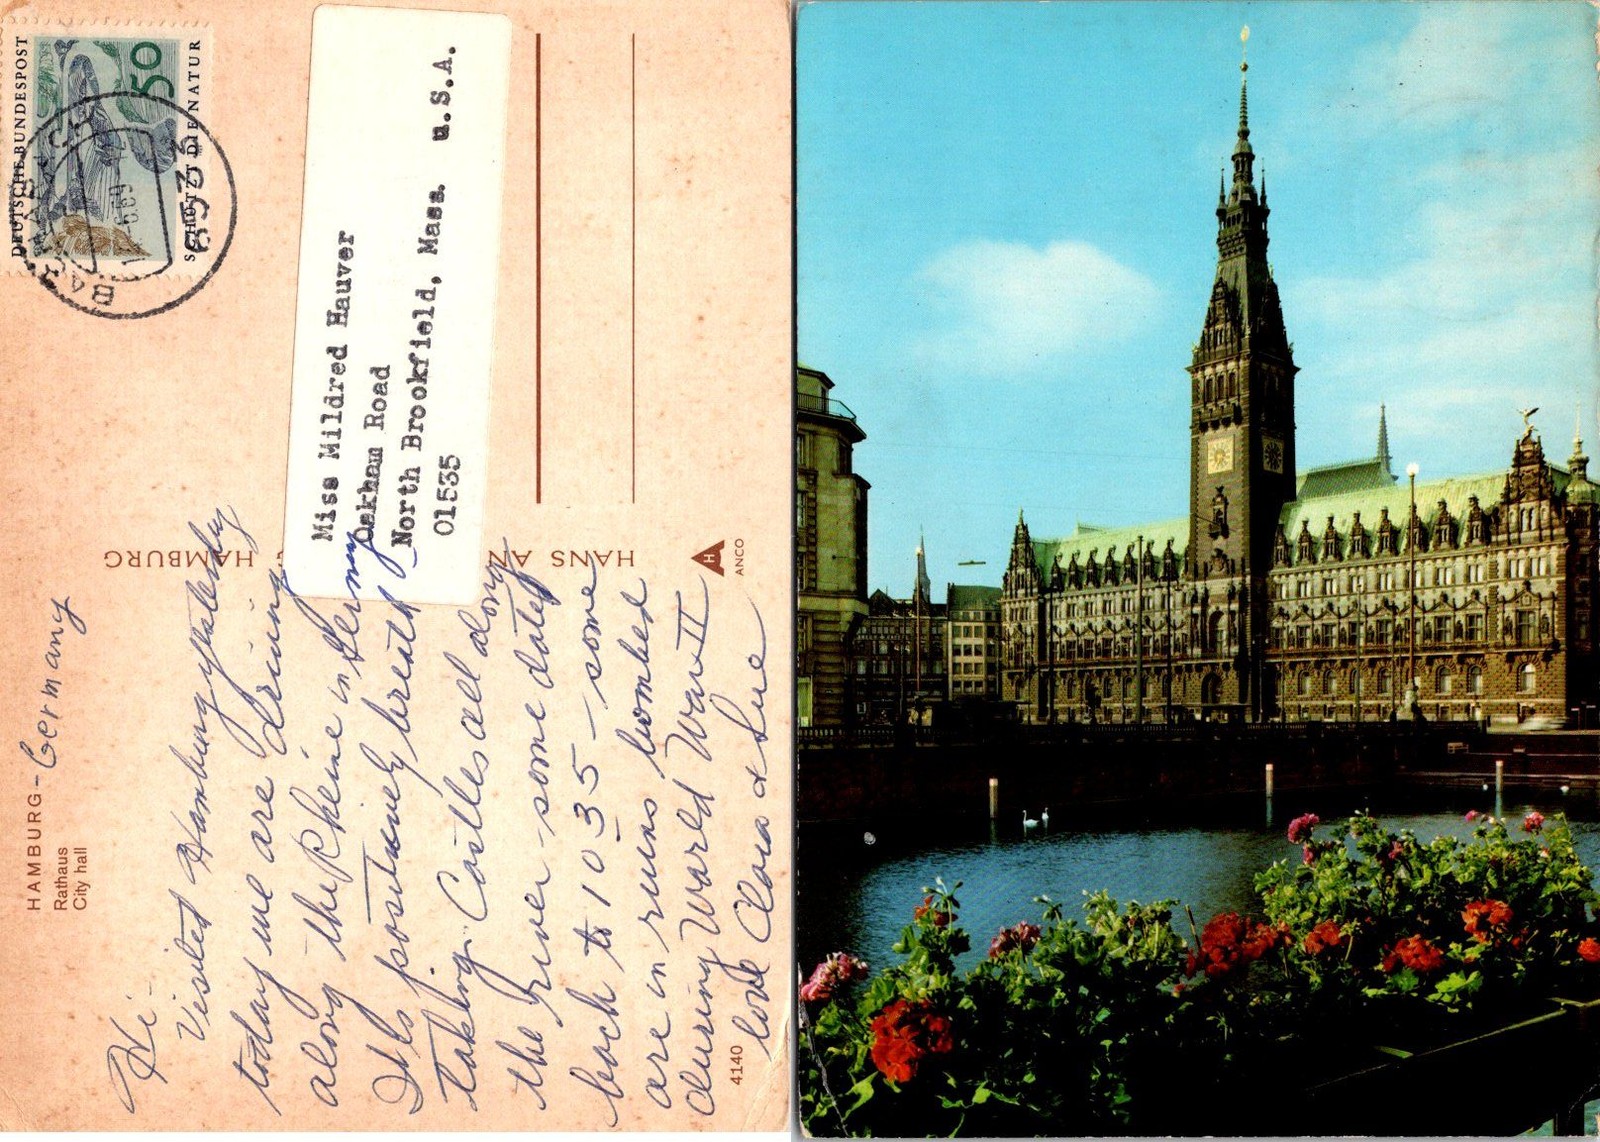 HAMBURG - Germany
Rathaus
City hall
Hi -
Visited Hamburg yesterday
today we are driving
along the Rheine in Germany
It is positively breath
taking. Castles all along
the river - some dated
back to 1035 - some
are in ruins bombed
during World War II
love Clara & Sue
4140
HANS AN
HAMBURG
H
ANCO
DEUTSCHE BUNDESPOST
50
SCHÜTZT DIE NATUR
BACHARACH
6.69
6533
Miss Mildred Hauver
Oakham Road
North Brookfield, Mass. U.S.A.
01535